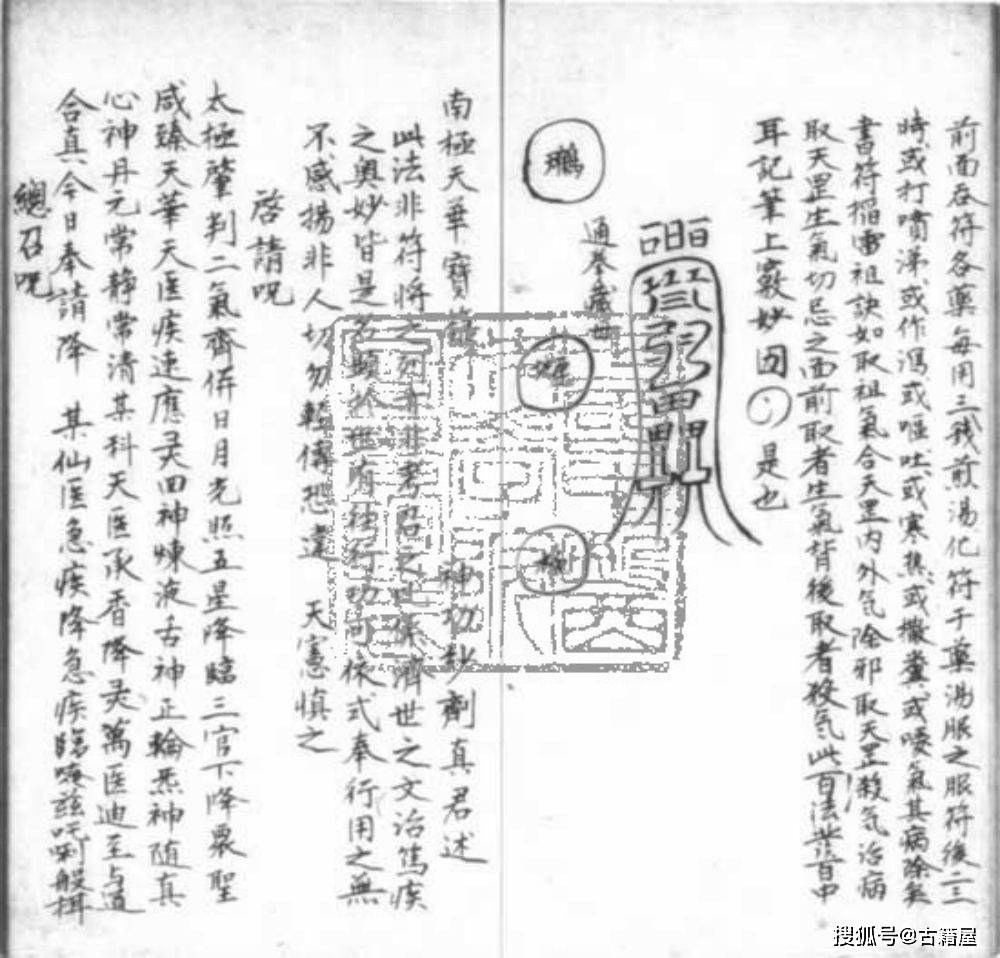 前面吞符各藥每用三錢煎湯化符于藥湯服之服符後二三
時或打噴涕或作瀉或嘔吐或寒熱或撒糞或噯氣其病除矣
書符搯雷祖訣如取祖氣合天罡內外氣除邪取天罡殺气治病
取天罡生氣切忌之面前取者生氣背後取者殺气此百法百中
耳記筆上竅妙因是也
通
南極天華寶籙
神功妙劑真君述
此法非符將之列非考召之係濟世之文治篤疾
之奧妙皆是名顯於世有往行功可依式奉行用之無
不感揚非人切勿輕傳恐違 天憲慎之
啓請咒
太極肇判二氣齊併日月光照五星降臨三官下降衆聖
咸臻天華天医疾速應灵四神煉液舌神正輪炁神随真
心神丹元常静常清某科天医承香降灵萬医迪至与道
合真今日奉請降 某仙医急疾降急疾臨唵兹吒唎般
總召咒
搜狐号@古籍屋